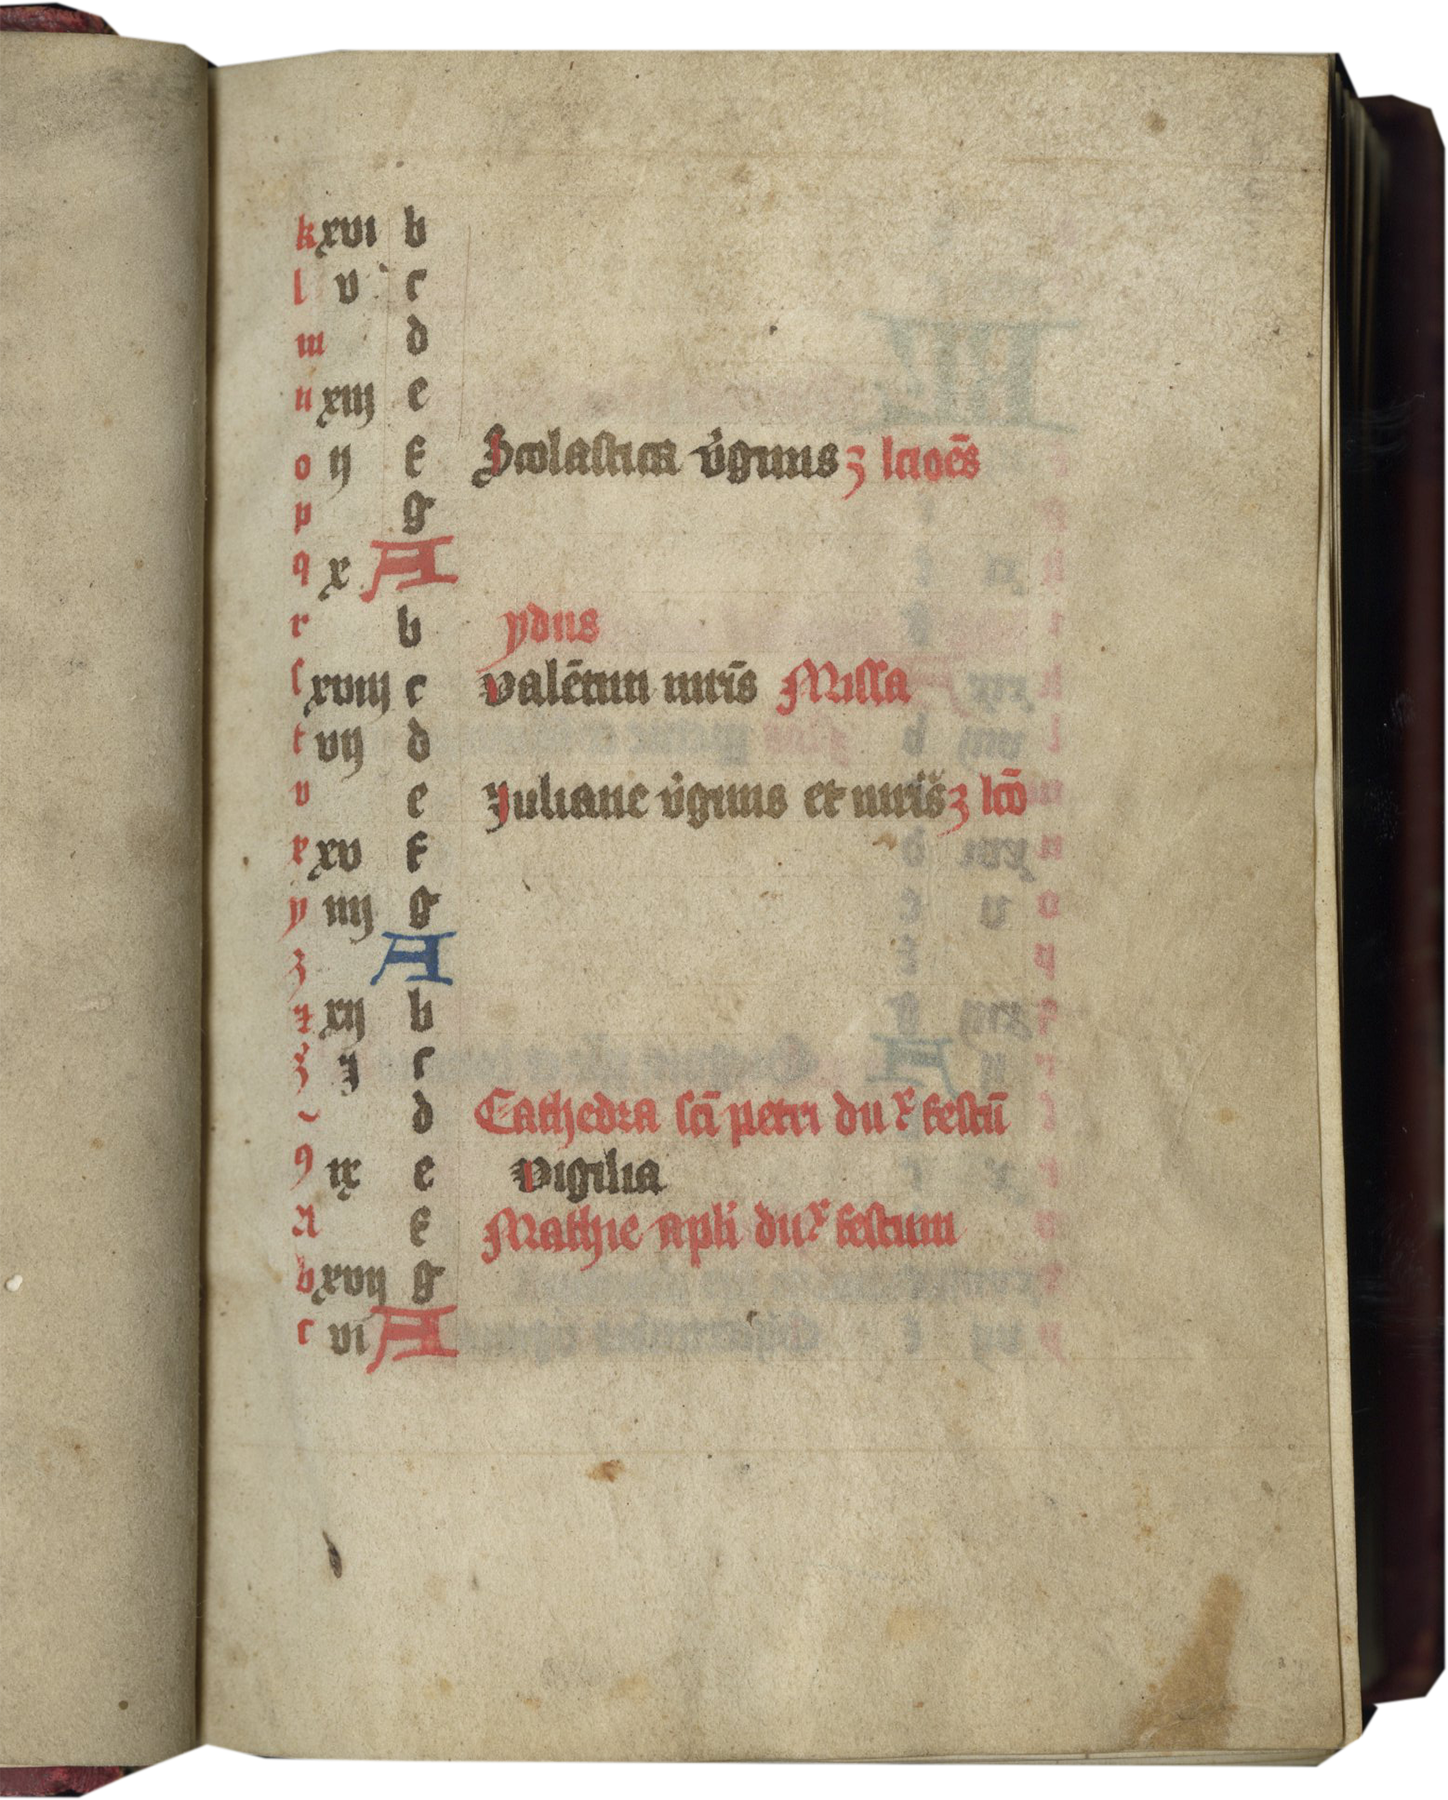 k xvi b
l v c
m d
n xiij e
o ij f Scolastica v̾ginis 3 lcioēs
p g
q x A
r b ydus
ſ xviij c valētini mr̄is Miſſa
t vij d
v e Juliane v̾ginis et mr̄is 3 lcō
x xv f
y iiij g
z A
ƶ xij b
ʒ j c
~ d Cathedra ſcī petri du x feſtū
9 ix e vigilia
A f Mathie apli du x feſtum
b xvij g
c vi A